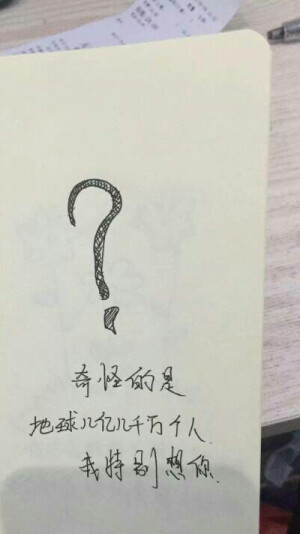 ?
奇怪的是
地球几亿几千万个人
我特别想你